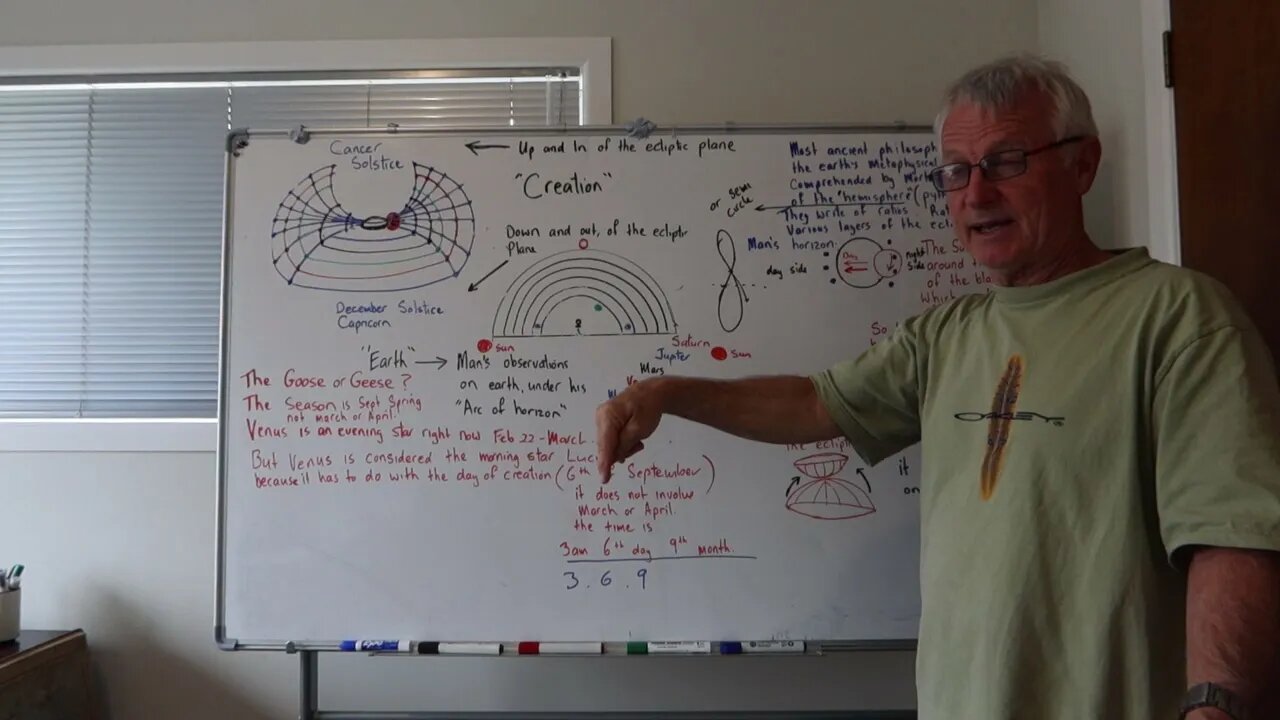 Cancer
Solstice
Up and In of the ecliptic plane
"Creation"
Down and out, of the ecliptr
Plane
December Solstice
Capricorn
sun
or semi
circle
Most ancient philosoph
the earth's Metaphysical
Comprehended by
of the "hemisphere"
They write of ratios
Various layers of the
Man's horizon.
day side
Day
night
side
The
around
of the
Which
So
Saturn
Jupiter
Mars
sun
"Earth"
Man's observations
on earth, under his
"Arc of horizon"
The Goose or Geese?
The Season is Sept Spring
not march or April.
Venus is an evening star right now Feb 22 - March
But Venus is considered the morning star
because it has to do with the day of creation (6th September)
it does not involve
March or April.
the time is
3am 6th day 9th month.
3 . 6 . 9
the
it
on